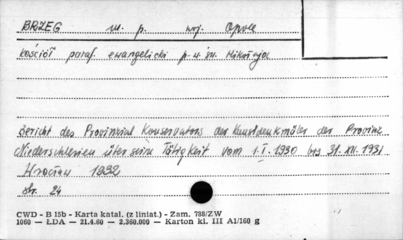 BRZEG m. p. woj. Opole
kościół paraf. ewangelicki p.w. św. Mikołaja
Bericht des Provinzial Konservators der Kunstdenkmäler der Provinz
Niederschlesien über seine Tätigkeit vom 1.I.1930 bis 31.XII.1931
Wrocław 1932
str. 24
CWD - B 15b - Karta katal. (z liniat.) - Zam. 788/ZW
1060 — ŁDA — 21.4.60 — 2.360.000 — Karton kl. III A1/160 g